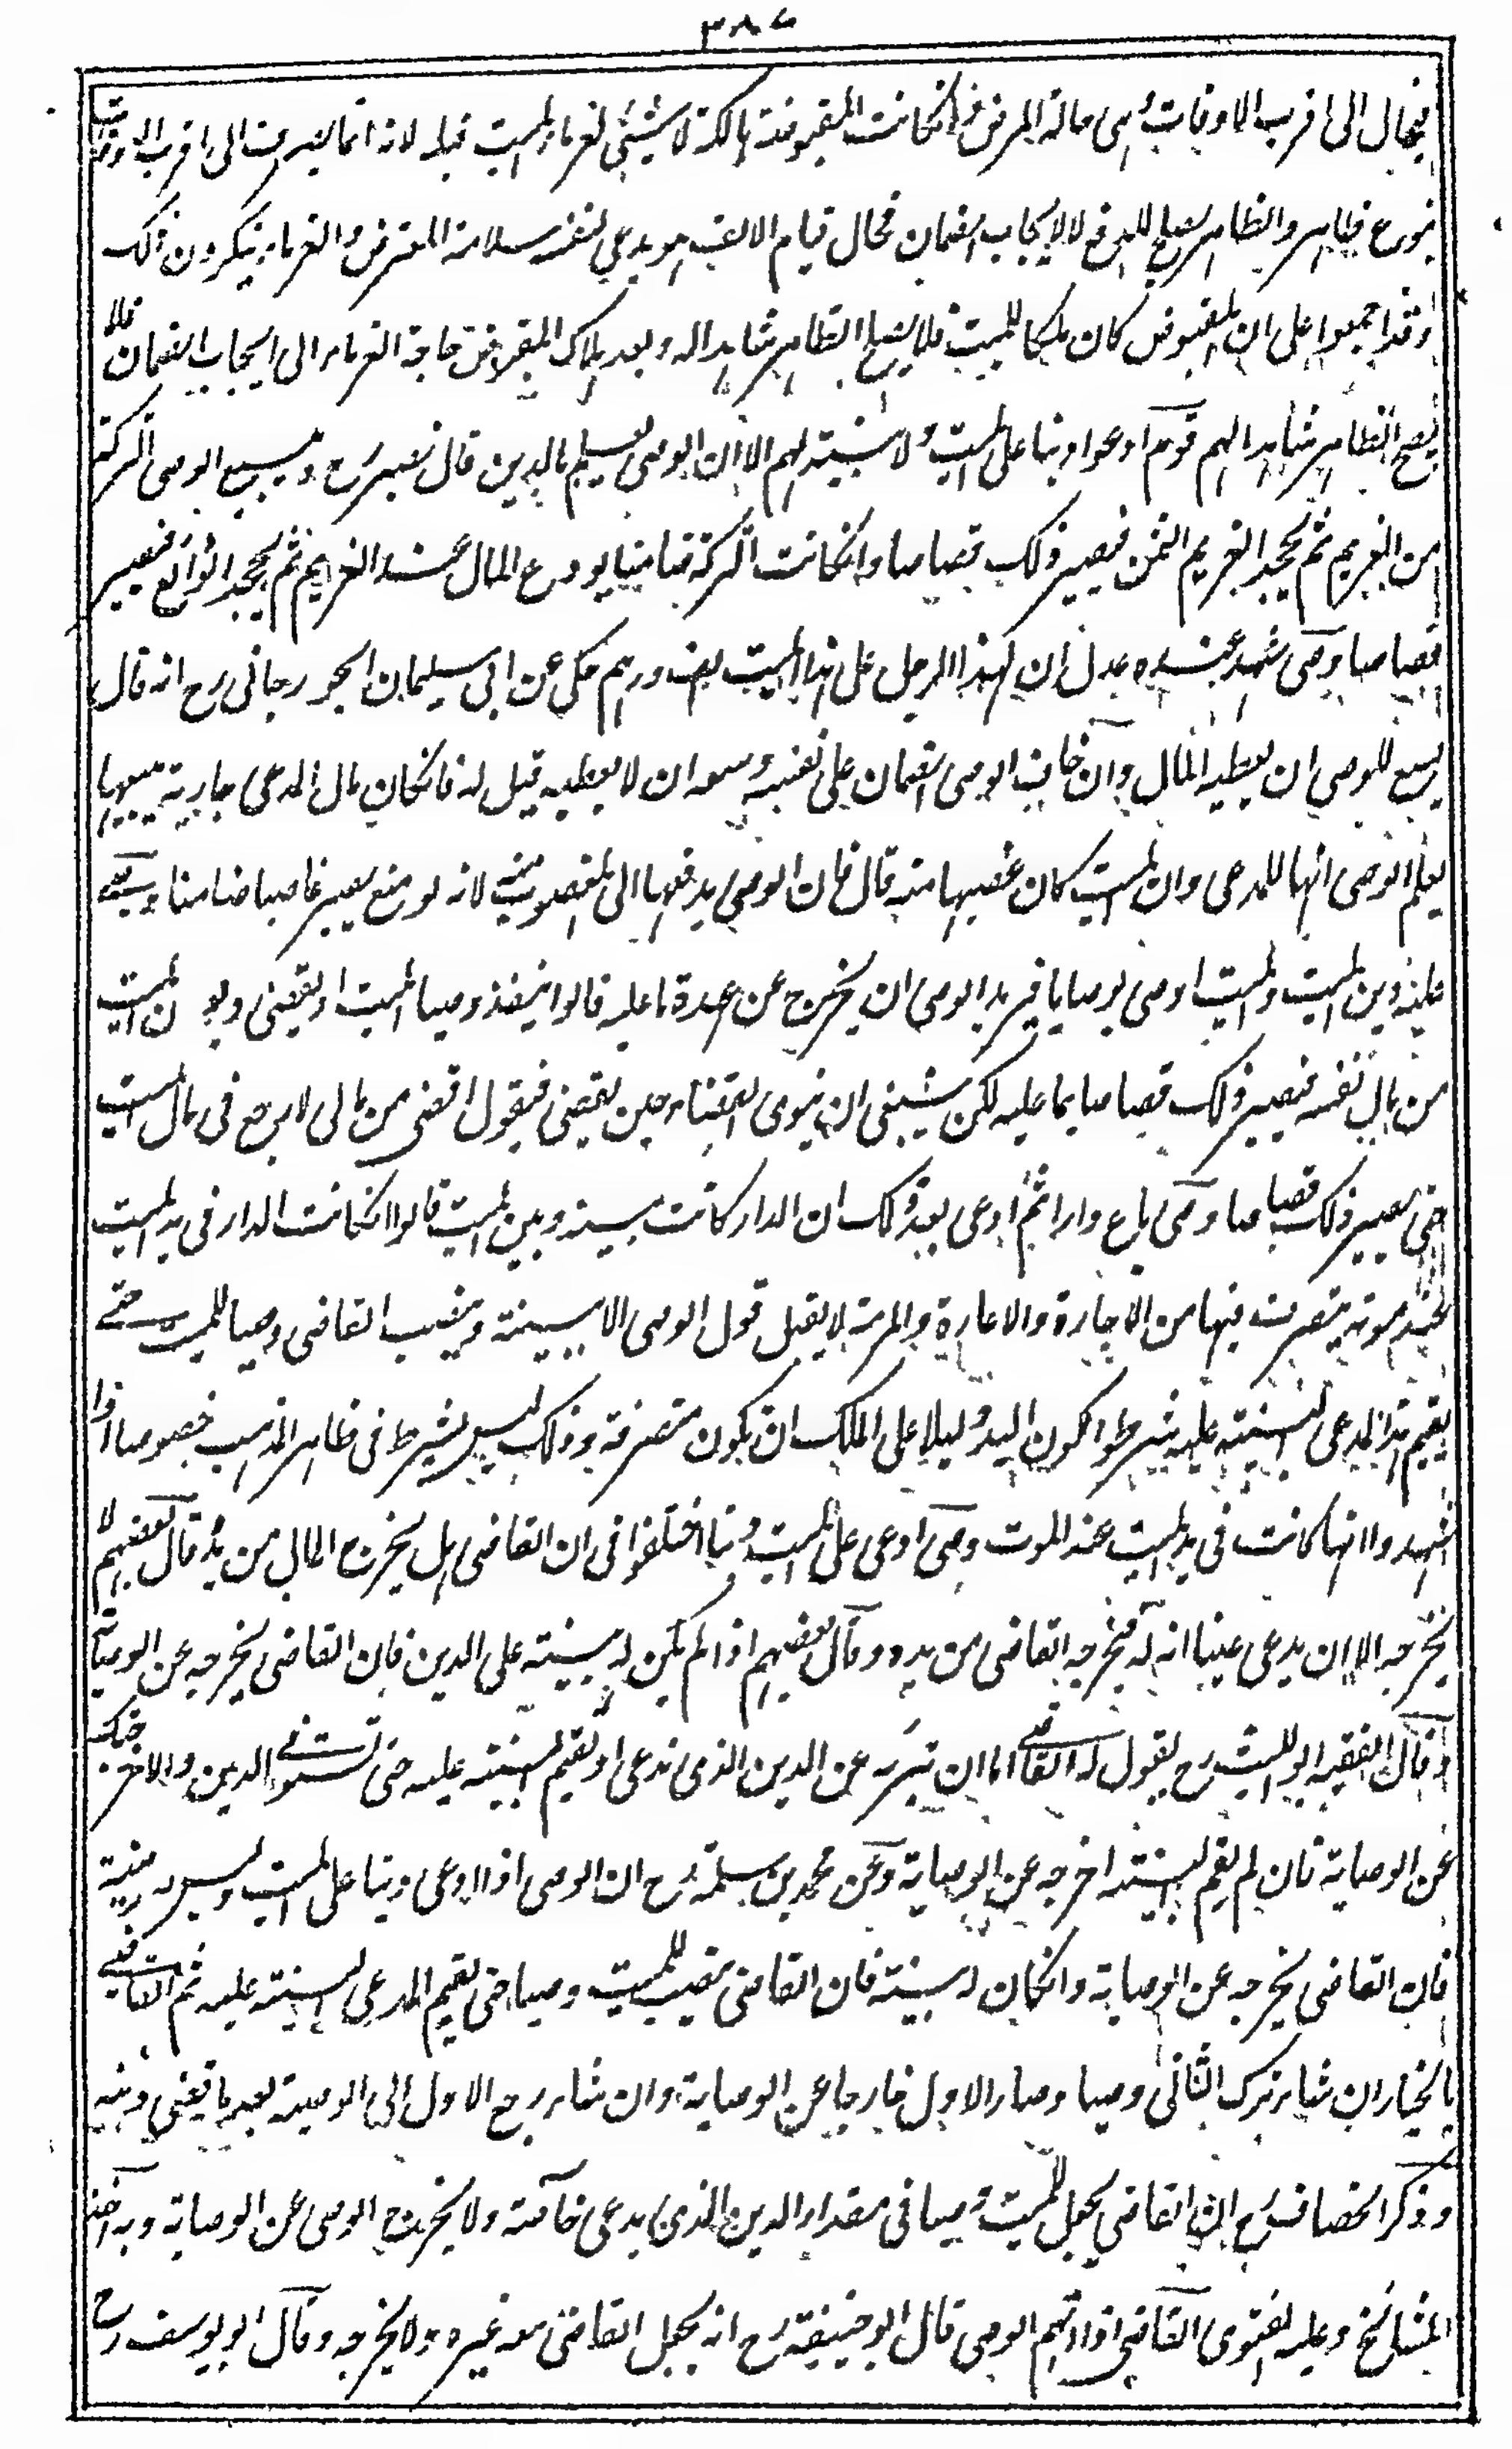 ٣٨٧
فيحال الى اقرب الاوقات وهى حالة المرض وانكانت المقبوضة هالكة لا شيئ لغرماء الميت قبله لانه انما ينصرف الى اقرب الاوقات
بنوع ظاهر والظاهر يصلح للدفع لا لايجاب الضمان فحال قيام الالف هو يدعى لنفسه سلامة المقبوض والغرماء ينكرون ذلك
وقد اجمعوا على ان المقبوض كان ملكا للميت فلا يصلح الظاهر شاهدا له وبعد هلاك المقبوض حاجة الغرماء الى ايجاب الضمان فلا
يصلح الظاهر شاهدا لهم قوم ادعوا دينا على الميت ولا بينة لهم الا ان الوصى يعلم بالدين قال نصير رح يبيع الوصى التركة
من الغريم ثم يجحد الغريم الثمن فيصير ذلك قصاصا وانكانت التركة ضامتا يودع المال عند الغريم ثم يجحد الوديع فيصير
قصاصا وصى شهد عنده عدل ان لهذا الرجل على هذا الميت الف درهم حكى عن ابى سليمان الجوزجانى رح انه قال
يسع للوصى ان يعطيه المال وان خاف الوصى الضمان على نفسه وسعه ان لا يعطيه قيل له فانكان مال المدعى جارية بعينها
يعلم الوصى انها للمدعى وان الميت كان غصبها منه قال فان الوصى يدفعها الى المغصوب منه لانه لو منع يصير غاصبا ضامنا وصى
عليه دين الميت والميت اوصى بوصايا فيريد الوصى ان يخرج عن عهدة ما عليه قالوا ينفذ وصايا الميت او يقضى ديون الميت
من مال نفسه فيصير ذلك قصاصا بما عليه لكن ينبغى ان ينوى القضاء حين يقضى فيقول اقضى من مالى لارجع فى مال الميت
حتى يصير ذلك قصاصا وصى باع دارا ثم ادعى بعد ذلك ان الدار كانت بينه وبين الميت قالوا انكانت الدار فى يد الميت
عند موته يتصرف فيها من الاجارة والاعارة والمرمة لا يقبل قول الوصى الا ببينة وينصب القاضى وصيا للميت حتى
يقيم هذا المدعى البينة عليه شرطوا لكون اليد دليلا على الملك ان يكون متصرفة وذلك ليس بشرط فى ظاهر المذهب خصوصا اذا
شهدوا انها كانت فى يد الميت عند الموت وصى ادعى على الميت دينا اختلفوا فى ان القاضى هل يخرج المال من يده قال بعضهم لا
يخرجه الا ان يدعى عينا انه له فيخرجه القاضى من يده وقال بعضهم اذا لم يكن له بينة على الدين فان القاضى يخرجه عن الوصاية
وقال الفقيه ابو الليث رح يقول له القاضى اما ان تبرئه عن الدين الذى تدعى او تقيم البينة عليه حتى تستوفى الدين والا اخرجتك
عن الوصاية فان لم يقم البينة اخرجه عن الوصاية وعن محمد بن سلمة رح ان الوصى اذا ادعى دينا على الميت وليس له بينة
فان القاضى يخرجه عن الوصاية وانكان له بينة فان القاضى ينصب للميت وصيا حتى يقيم المدعى البينة عليه ثم القاضى
بالخيار ان شاء ترك الثانى وصيا وصار الاول خارجا عن الوصاية وان شاء رجع الاول الى الوصية بعد ما يقضى دينه
وذكر الخصاف رح ان القاضى يجعل للميت وصيا فى مقدار الدين الذى يدعى خاصة ولا يخرج الوصى عن الوصاية وبه اخذ
المشايخ وعليه الفتوى القاضى اذا اتهم الوصى قال ابو حنيفة رح انه يجعل القاضى معه غيره ولا يخرجه وقال ابو يوسف رح